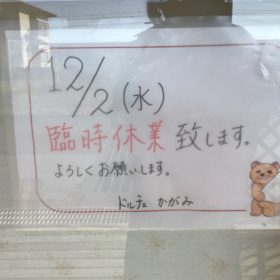 12/2(水)
臨時休業致します。
よろしくお願いします。
ドルチェ かがみ